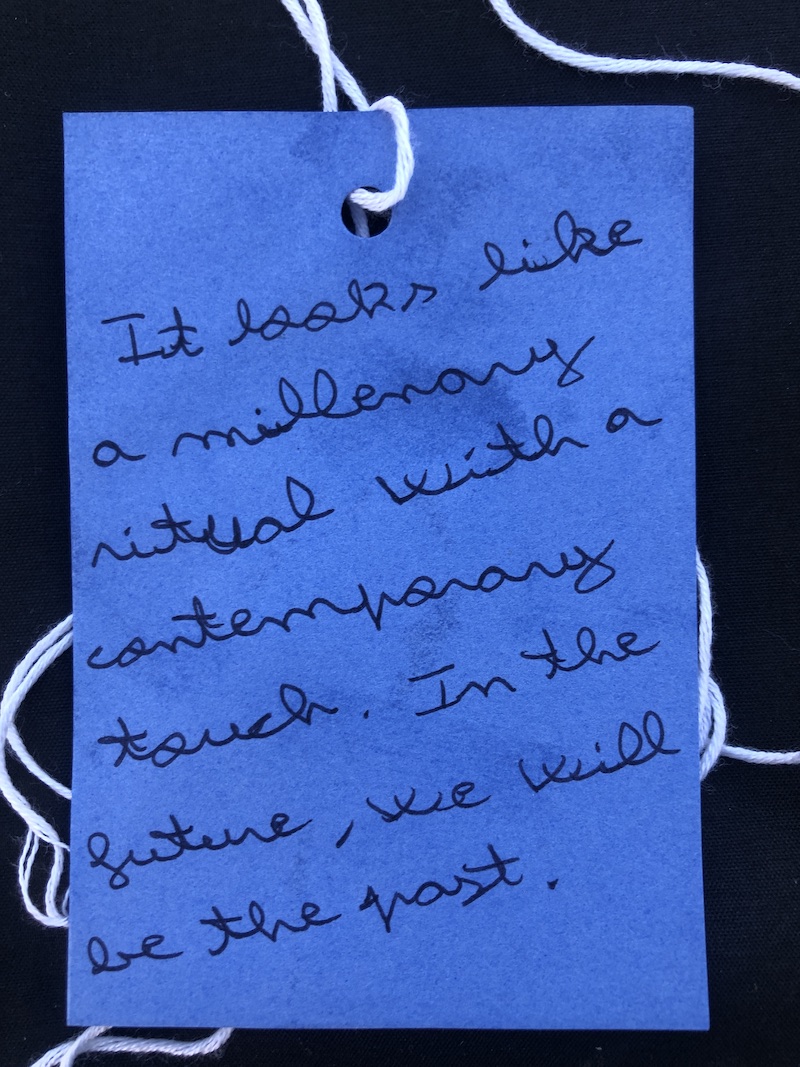 It looks like
a millenary
ritual with a
contemporary
touch. In the
future, we will
be the past.